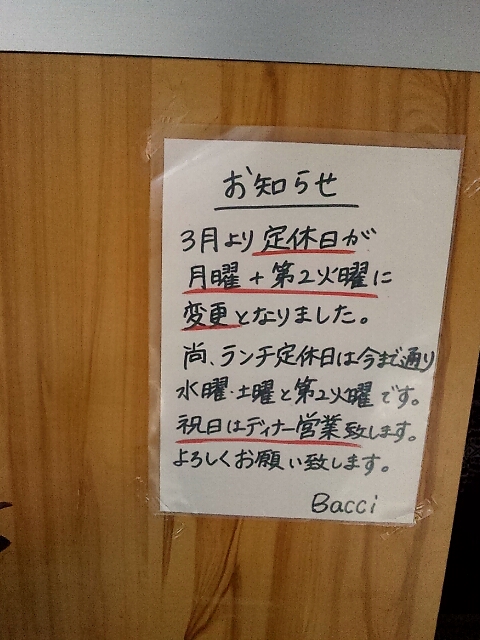 お知らせ
3月より定休日が
月曜+第2火曜に
変更となりました。
尚、ランチ定休日は今まで通り
水曜・土曜と第2火曜です。
祝日はディナー営業致します。
よろしくお願い致します。
Bacci